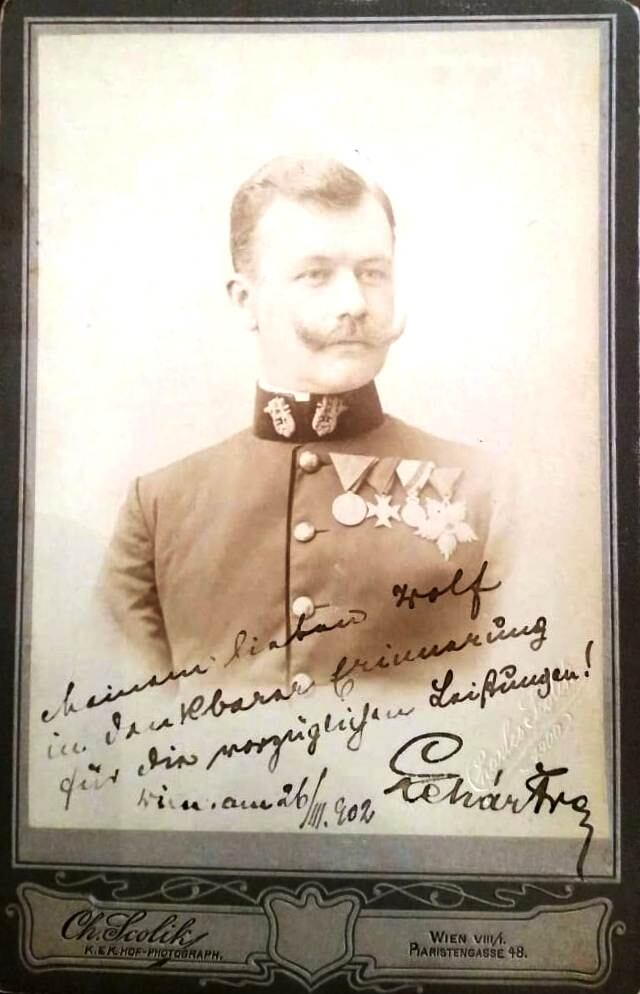 Meinem lieben Wolf
in dankbarer Erinnerung
für die vorzüglichen Leistungen!
Wien. am 26/III. 902
Lehár Frz
Ch. Scolik
K. & K. HOF-PHOTOGRAPH.
WIEN VIII/1.
PIARISTENGASSE 48.